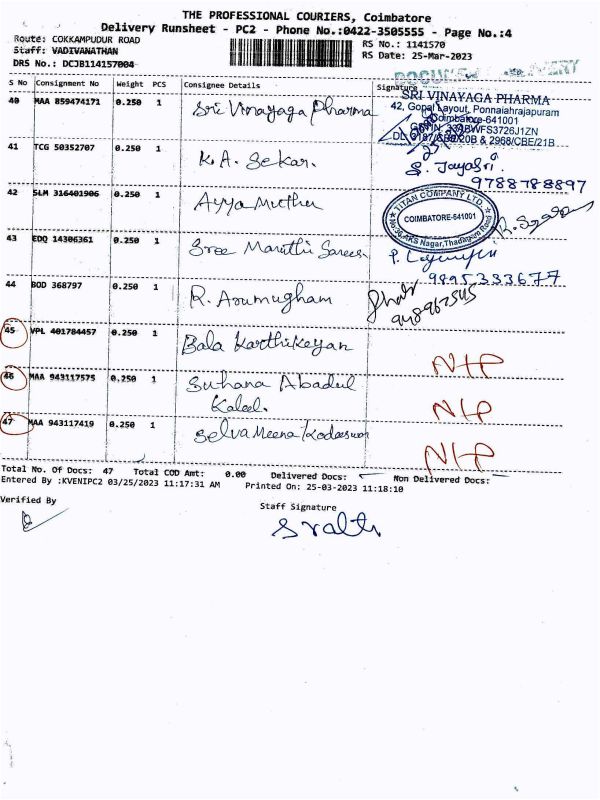 THE PROFESSIONAL COURIERS, Coimbatore
Delivery Runsheet - PC2 - Phone No.:0422-3505555 - Page No.:4
Route: COKKAMPUDUR ROAD
RS No.: 1141570
Staff: VADIVANATHAN
RS Date: 25-Mar-2023
DRS No.: DCJB114157004
S No Consignment No Weight PCS Consignee Details Signature
SRI VINAYAGA PHARMA
40 MAA 859474171 0.250 1 Sri Vinayaga Pharma
42, Gopal Layout, Ponnaiahrajapuram
Coimbatore-641001
41 TCG 50352707 0.250 1 K.A. Sekar. S. Jayasri.
9788788897
42 SLM 316401906 0.250 1 Ayya Muthu
TITAN COMPANY LTD.
COIMBATORE-641001
43 EDQ 14306361 0.250 1 Sree Maruthi Sarees
9895333677
44 BOD 368797 0.250 1 R. Arumugham
45 VPL 401784457 0.250 1 Bala Karthikeyan
46 MAA 943117575 0.250 1 Suhana Abadul
Kaleel.
47 MAA 943117419 0.250 1 Selva Meena
Total No. Of Docs: 47 Total COD Amt: 0.00 Delivered Docs: Non Delivered Docs:
Entered By :KVENIPC2 03/25/2023 11:17:31 AM Printed On: 25-03-2023 11:18:10
Verified By
Staff Signature